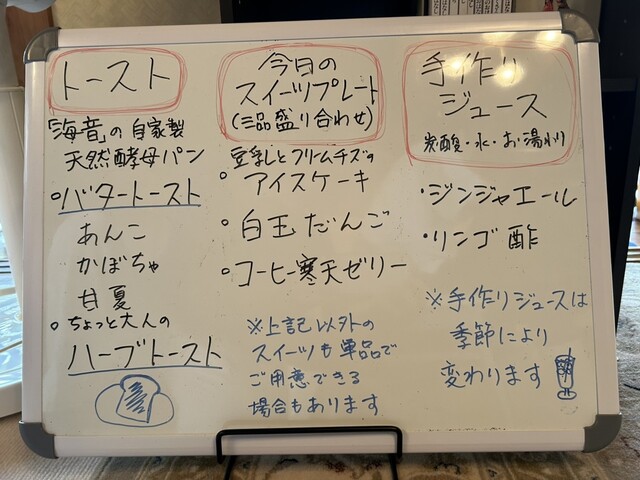 トースト
「海音」の自家製
天然酵母パン
・バタートースト
あんこ
かぼちゃ
甘夏
・ちょっと大人の
ハーブトースト
今日の
スイーツプレート
(三品盛り合わせ)
豆乳しとクリームチーズの
アイスケーキ
・白玉だんご
・コーヒー寒天ゼリー
※上記以外の
スイーツも単品で
ご用意できる
場合もあります
手作り
ジュース
炭酸・水・お湯わり
・ジンジャエール
・リンゴ酢
※手作りジュースは
季節により
変わります